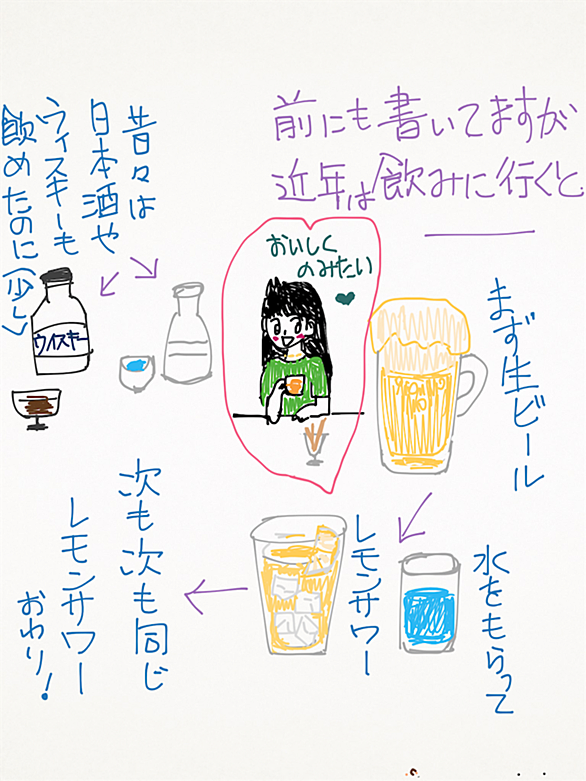 前にも書いてますが
近年は飲みに行くと
まず生ビール
水をもらって
レモンサワー
次も次も同じ
レモンサワー
おわり!
おいしく
のみたい
昔々は
日本酒や
ウィスキーも
飲めたのに(少し)
ウイスキー